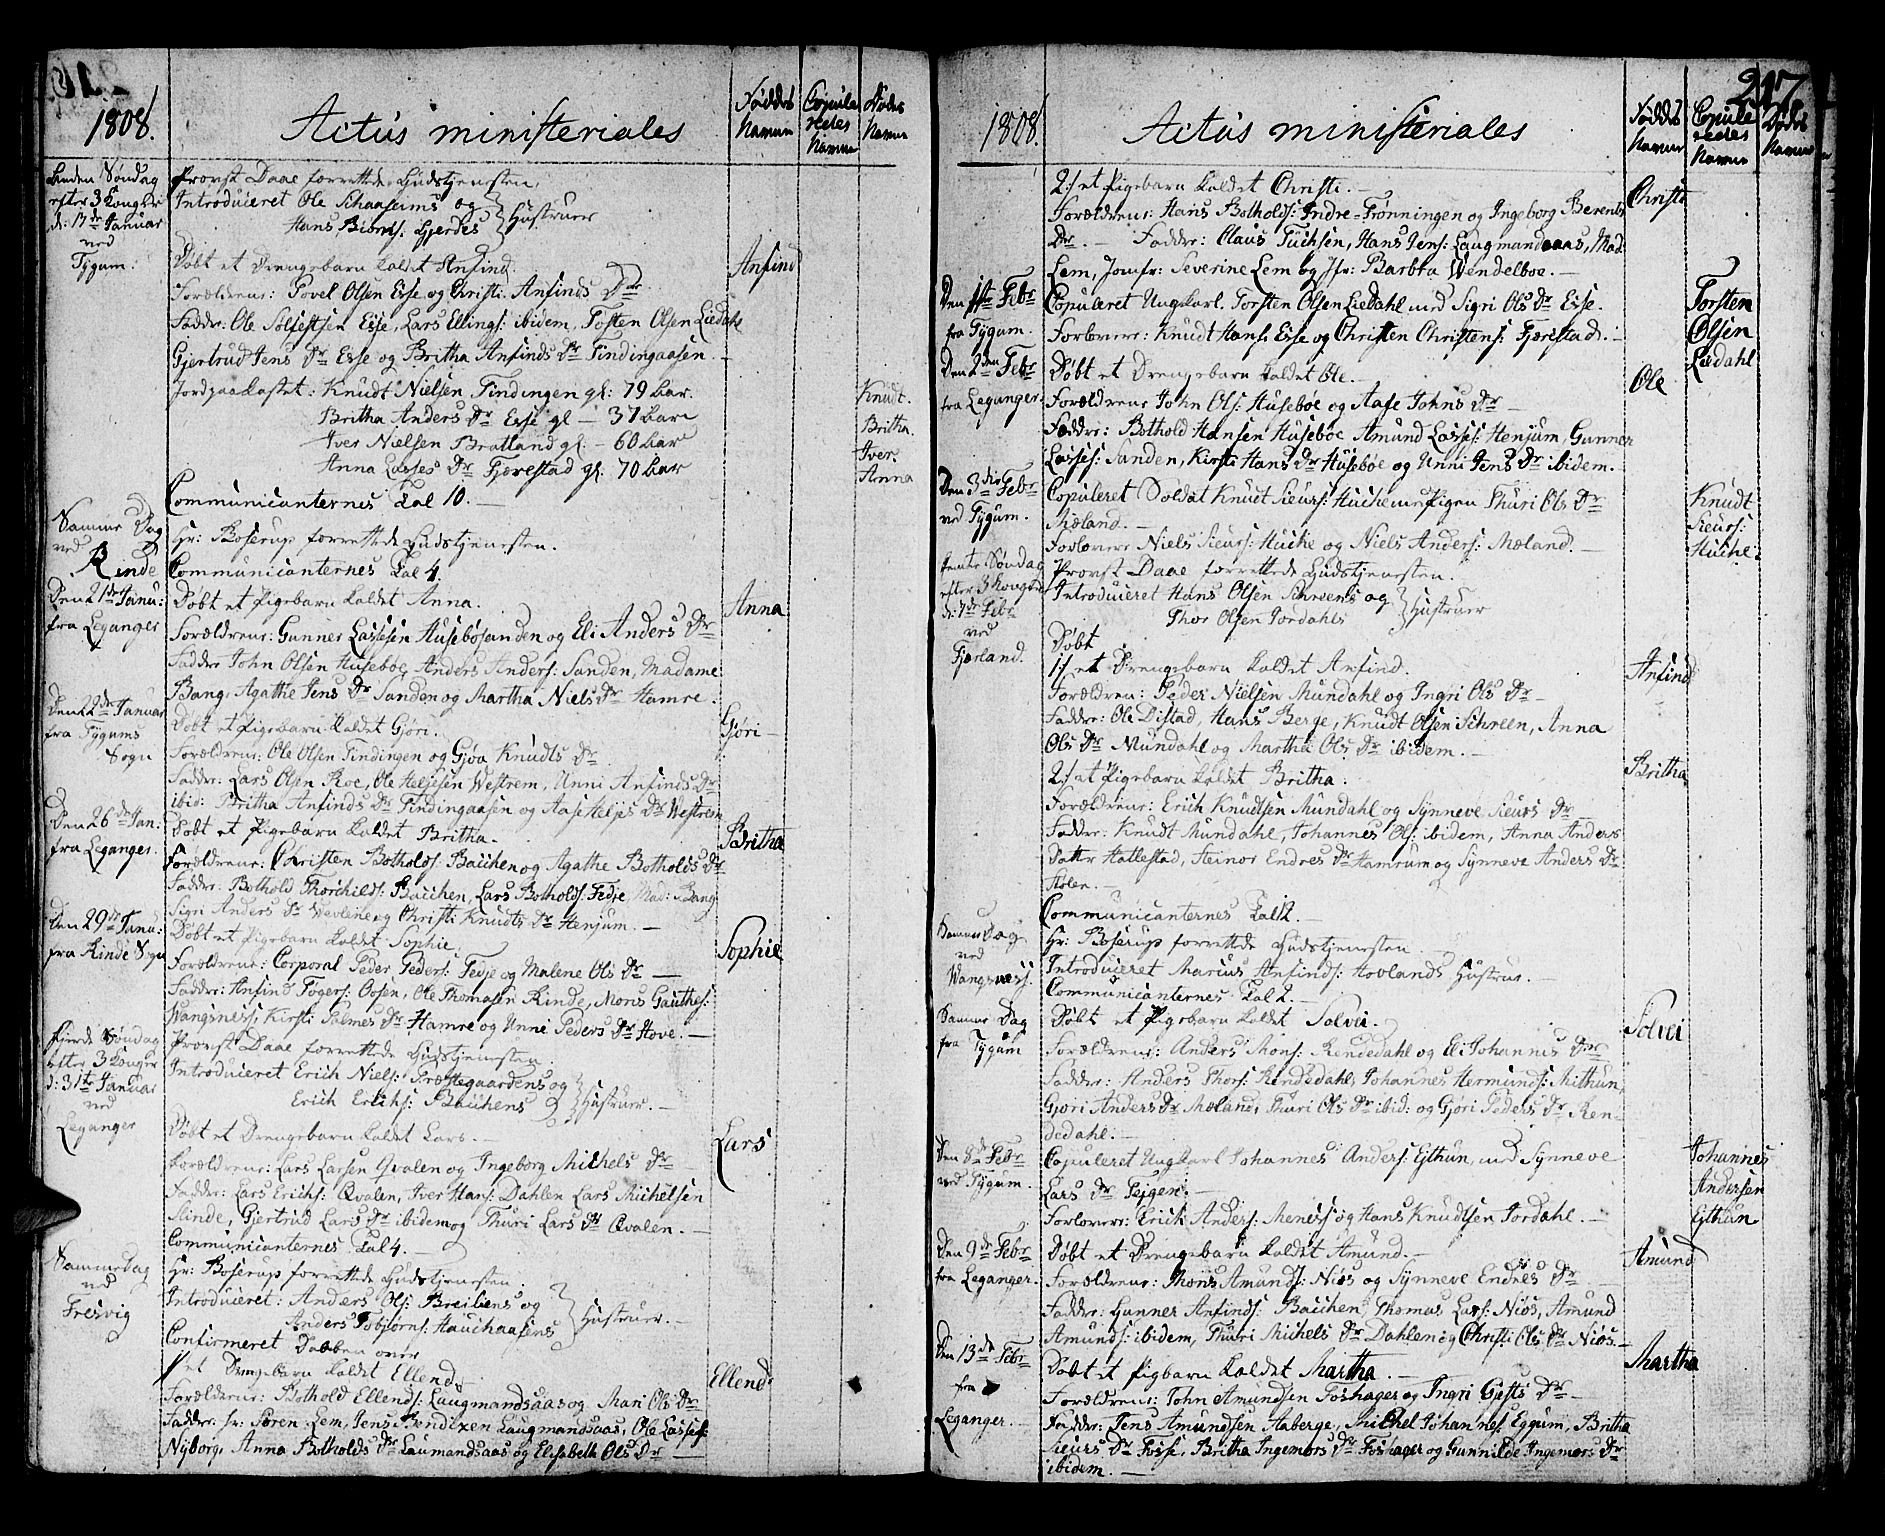 1808.
Actus ministeriales
Føddes Navne
Copuleredes Navne
Dødes Navne
Anden Søndag
efter 3 Konger
d: 17de Januar
ved
Tygum:
Provst Daae forrettede Gudstjenesten,
Introduceret Ole Schaaseims og
Hans Biørns: Gjerdes } Hustruer
Døbt et Drengebarn kaldet Anfind.
Anfind
Forældrene: Povel Olsen Esse og Christi Anfinds Dr.
Faddr: Ole Solfestsen Esse, Lars Ellings: ibidem, Tosten Olsen Liedahl
Gjertrud Jens Dr Esse og Britha Anfinds Dr Tindingaasen. —
Jordpaakastet: Knudt Nielsen Tindingen gl: 79 Aar.
Knudt.
Britha Anders Dr Esse gl — 37 Aar
Britha.
Iver Nielsen Bratland gl: — 60 Aar
Iver.
Anna Lasses Dr Fjærestad gl: 70 Aar
Anna
Communicanternes Tal 10. —
Samme Dag
ved
Rinde
Hr: Boserup forrettede Gudstjenesten.
Communicanternes Tal 4.
Den 21de Janu:
fra Leganger
Døbt et Pigebarn kaldet Anna.
Anna
Forældrene: Gunner Lassesen Husebøsanden og Eli Anders Dr
Faddr John Olsen Husebøe, Anders Anders: Sanden, Madame
Bang, Agathe Jens Dr Sanden og Martha Niels Dr Hamre.
Den 22de Januar
fra Tygums
Sogn
Døbt et Pigebarn kaldet Gjøri.
Gjøri
Forældrene: Ole Olsen Tindingen og Gjøa Knudts Dr
Faddr: Lars Olsen Roe, Ole Heljesen Westrem, Unni Anfinds Dr
ibid: Britha Anfinds Dr Tindingaasen og Aase Heljes Dr Westrem
Den 26de Jan.
fra Leganger.
Døbt et Pigebarn kaldet Britha.
Britha
Forældrene: Christen Botholds: Bauchen og Agathe Botholds Dr
Faddr: Bothold Thorchilds: Bauchen, Lars Botholds: Fedje, Mad: Bang
Sigri Anders Dr og Christi Knudts Dr Henjum. —
Den 29de Janu:
fra Rinde Sogn
Døbt et Pigebarn kaldet Sophie
Sophie
Forældrene: Corporal Peder Peders: Fedje og Malene Ols Dr —
Faddr: Anfind Tøgers: Oosen, Ole Thomasen Rinde, Mons Gauthes:
Wangsness, Kirsti Palmes Dr Hamre og Unni Peders Dr Hove. —
Fjerde Søndag
efter 3 Konger
d: 31te Januar
ved
Leganger
Provst Daae forrettede Gudstjenesten.
Introduceret Erich Niels: Præstegaardens og
Erich Erichs: Bauchens } Hustruer. —
Døbt et Drengebarn kaldet Lars. —
Lars
Forældrene: Lars Larsen Qvalen og Ingeborg Michels Dr —
Faddr: Lars Erichs: Qvalen, Iver Hans: Dahlen Lars Michelsen
Slinde, Gjertrud Lars Dr ibidem og Thuri Lars Dr Qvalen. —
Communicanternes Tal 4. —
Samme Dag
ved
Fresvig
Hr: Boserup forrettede Gudstjenesten.
Introduceret: Anders Ols: Breiliens og
Anders Tobjørns: Hauchaasens } Hustruer. —
Confirmeret Daaben over
1/ et Drengebarn kaldet Ellend.
Ellend
Forældrene: Bothold Ellends: Laugmandsaas og Mari Ols Dr
Faddr: Hr: Søren Lem, Jens Bendixen Laugmandsaas, Ole Lasses:
Nyborg, Anna Botholds Dr Laumandsaas og Elisabeth Ols Dr —
217
1808.
Actus ministeriales
Føddes Navne
Copuleredes Navne
Dødes Navne
2:/ et Pigebarn kaldet Christi. —
Christi
Forældrene: Hans Botholds: Indre-Frønningen og Ingeborg Berents
Dr. — Faddr: Claus Tuchsen, Hans Jens: Laugmandsaas, Mad:
Lem, Jomfr: Severine Lem og Jfr: Barbra Wendelboe. —
Den 1ste Febr
fra Tygum.
Copuleret Ungkarl Torsten Olsen Liedahl med Sigri Ols Dr Esse.
Torsten
Olsen
Liedahl
Forlovere: Knudt Hans: Esse og Christen Christens: Fjærestad. —
Den 2den Febr
fra Leganger.
Døbt et Drengebarn kaldet Ole. —
Ole
Forældrene John Ols: Husebøe og Aase Johns Dr —
Faddr: Bothold Hansen Husebøe Amund Lasses: Henjum, Gunner
Lasses: Sanden, Kirsti Hans Dr Husebøe og Unni Jens Dr ibidem.
Den 3die Febr
ved Tygum.
Copuleret Soldat Knudt Sieurs: Huche med Pigen Thuri Ols Dr
Knudt
Sieurs:
Huche
Mæland. —
Forlovere Niels Sieurs: Huche og Niels Anders: Mæland. —
Femte Søndag
efter 3 Konger
d: 7de Febr
ved
Fjærland.
Provst Daae forrettede Gudstjenesten.
Introduceret Hans Olsen Schreens og
Thor Olsen Jordahls } Hustruer
Døbt
1:/ et Drengebarn kaldet Anfind.
Anfind
Forældren: Peder Nielsen Mundahl og Ingri Ols Dr —
Faddr: Ole Distad, Hans Berge, Knudt Olsen Schreen, Anna
Ols Dr Mundahl og Martha Ols Dr ibidem. —
2:/ et Pigebarn kaldet Britha.
Britha
Forældrene: Erich Knudtsen Mundahl og Synneve Sieurs Dr
Faddr: Knudt Mundahl, Johannes Ols: ibidem, Anna Anders
Datter Hatlestad, Steinor Endres Dr Hamrum og Synneve Anders Dr
Holen. —
Communicanternes Tal 12. —
Samme Dag
ved
Wangsness.
Hr: Boserup forrettede Gudstjenesten
Introduceret Marcus Anfinds: Hovlands Hustrue.
Communicanternes Tal 2. —
Samme Dag
fra Tygum
Døbt et Pigebarn kaldet Solvei.
Solvei
Forældrene: Anders Mons: Rendedahl og Eli Johannis Dr
Faddr: Anders Thors: Rendedahl, Johannes Hermunds: Mithun,
Gjøri Anders Dr Mæland, Thuri Ols Dr ibid: og Gjøri Peders Dr Ren-
dedahl. —
Den 8de Febr
ved Tygum.
Copuleret Ungkarl Johannes Anders: Ejthun, med Synneve
Johannes
Andersen
Ejthun
Lars Dr Tejgen. —
Forlovere: Erich Anders: Menes og Hans Knudtsen Jordahl. —
Den 9de Febr
fra Leganger.
Døbt et Drengebarn kaldet Amund. —
Amund
Forældrene: Mons Amunds: Nios og Synneve Endres Dr
Faddr: Gunner Anfinds: Bauchen Thomas Lars: Nios, Amund
Amunds: ibidem, Thuri Michels Dr Dahlen og Christi Ols Dr Nios. —
Den 13de Febr
fra
Leganger. —
Døbt et Pigbarn kaldet Martha. —
Martha
Forældrene: John Amundsen Foshager og Ingri Gjests Dr —
Faddr: Jens Amundsen Aaberge, Michel Johannes: Eggum, Britha
Sieurs Dr Fosse, Britha Ingemars Dr Foshager og Gunnilde Ingemars Dr
ibidem. —